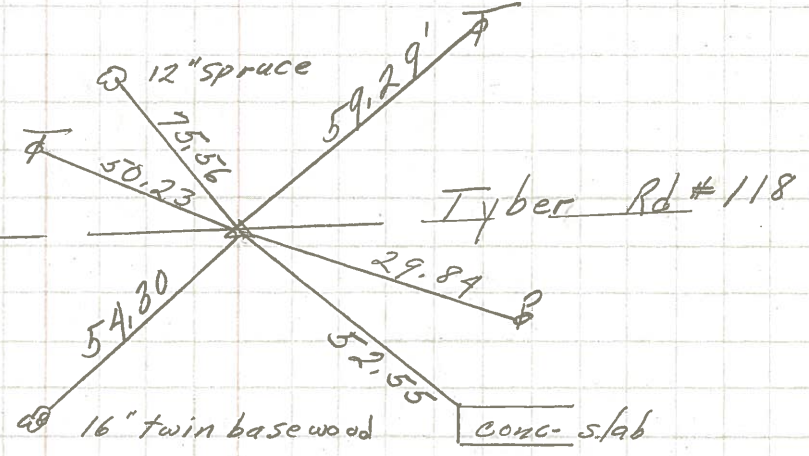 12" spruce
59.29'
75.56
50.23
Tyber Rd # 118
29.84
54.30
52.55
16" twin basewood
conc- slab